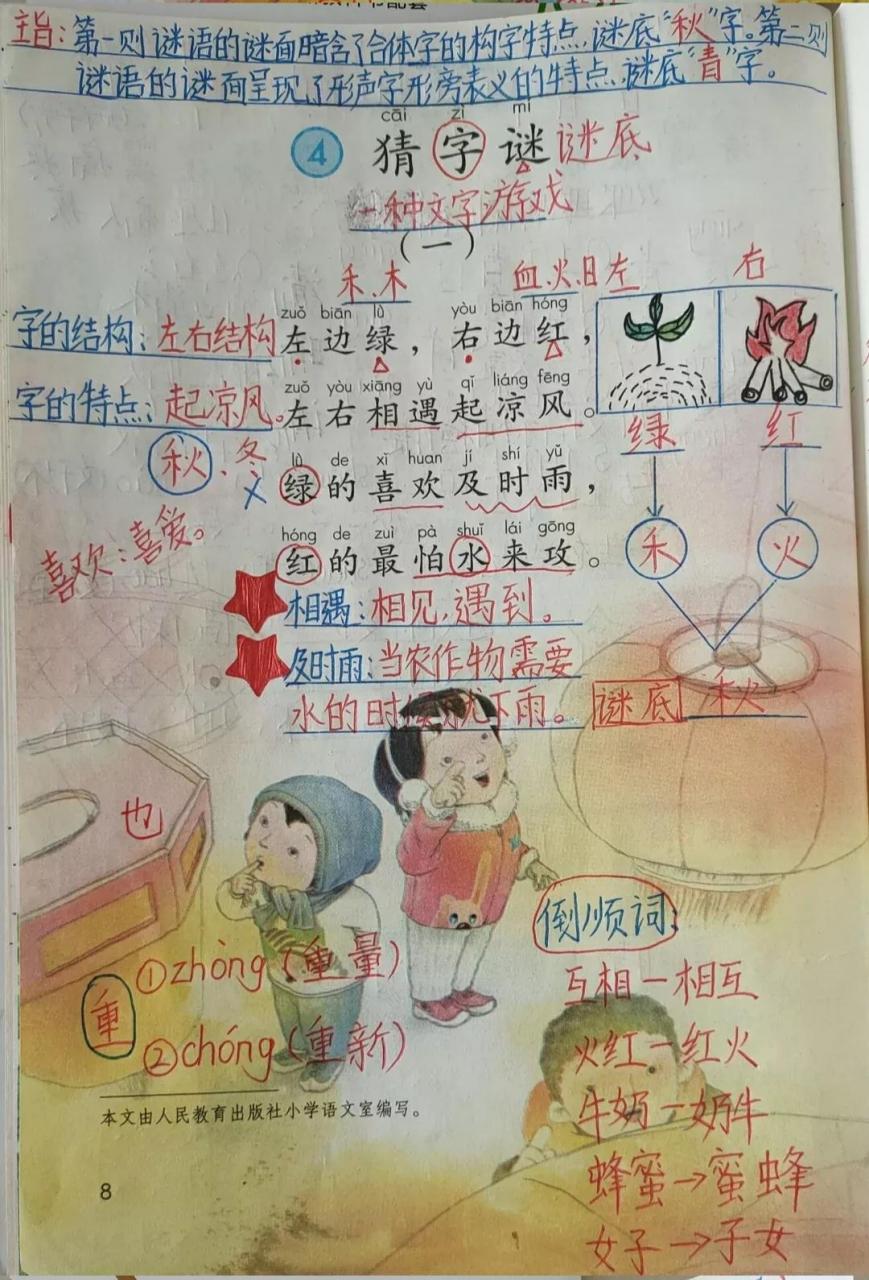 主旨：第一则谜语的谜面暗含了合体字的构字特点，谜底“秋”字。第二则
谜语的谜面呈现了形声字形旁表义的特点，谜底“青”字。
cāi zì mí
4 猜字谜 谜底
一种文字游戏
（一）
禾、木 血、火、日 左 右
zuǒ biān lǜ yòu biān hóng
字的结构：左右结构 左边绿，右边红，
zuǒ yòu xiāng yù qǐ liáng fēng
字的特点：起凉风。左右相遇起凉风。
绿 红
lǜ de xǐ huan jí shí yǔ
秋、冬 绿的喜欢及时雨，
hóng de zuì pà shuǐ lái gōng
红的最怕水来攻。
禾 火
喜欢：喜爱。
相遇：相见，遇到。
及时雨：当农作物需要
水的时候就下雨。 谜底 秋
也
倒顺词：
重 ①zhòng（重量）
②chóng（重新）
互相—相互
火红—红火
牛奶—奶牛
蜂蜜→蜜蜂
女子→子女
本文由人民教育出版社小学语文室编写。
8